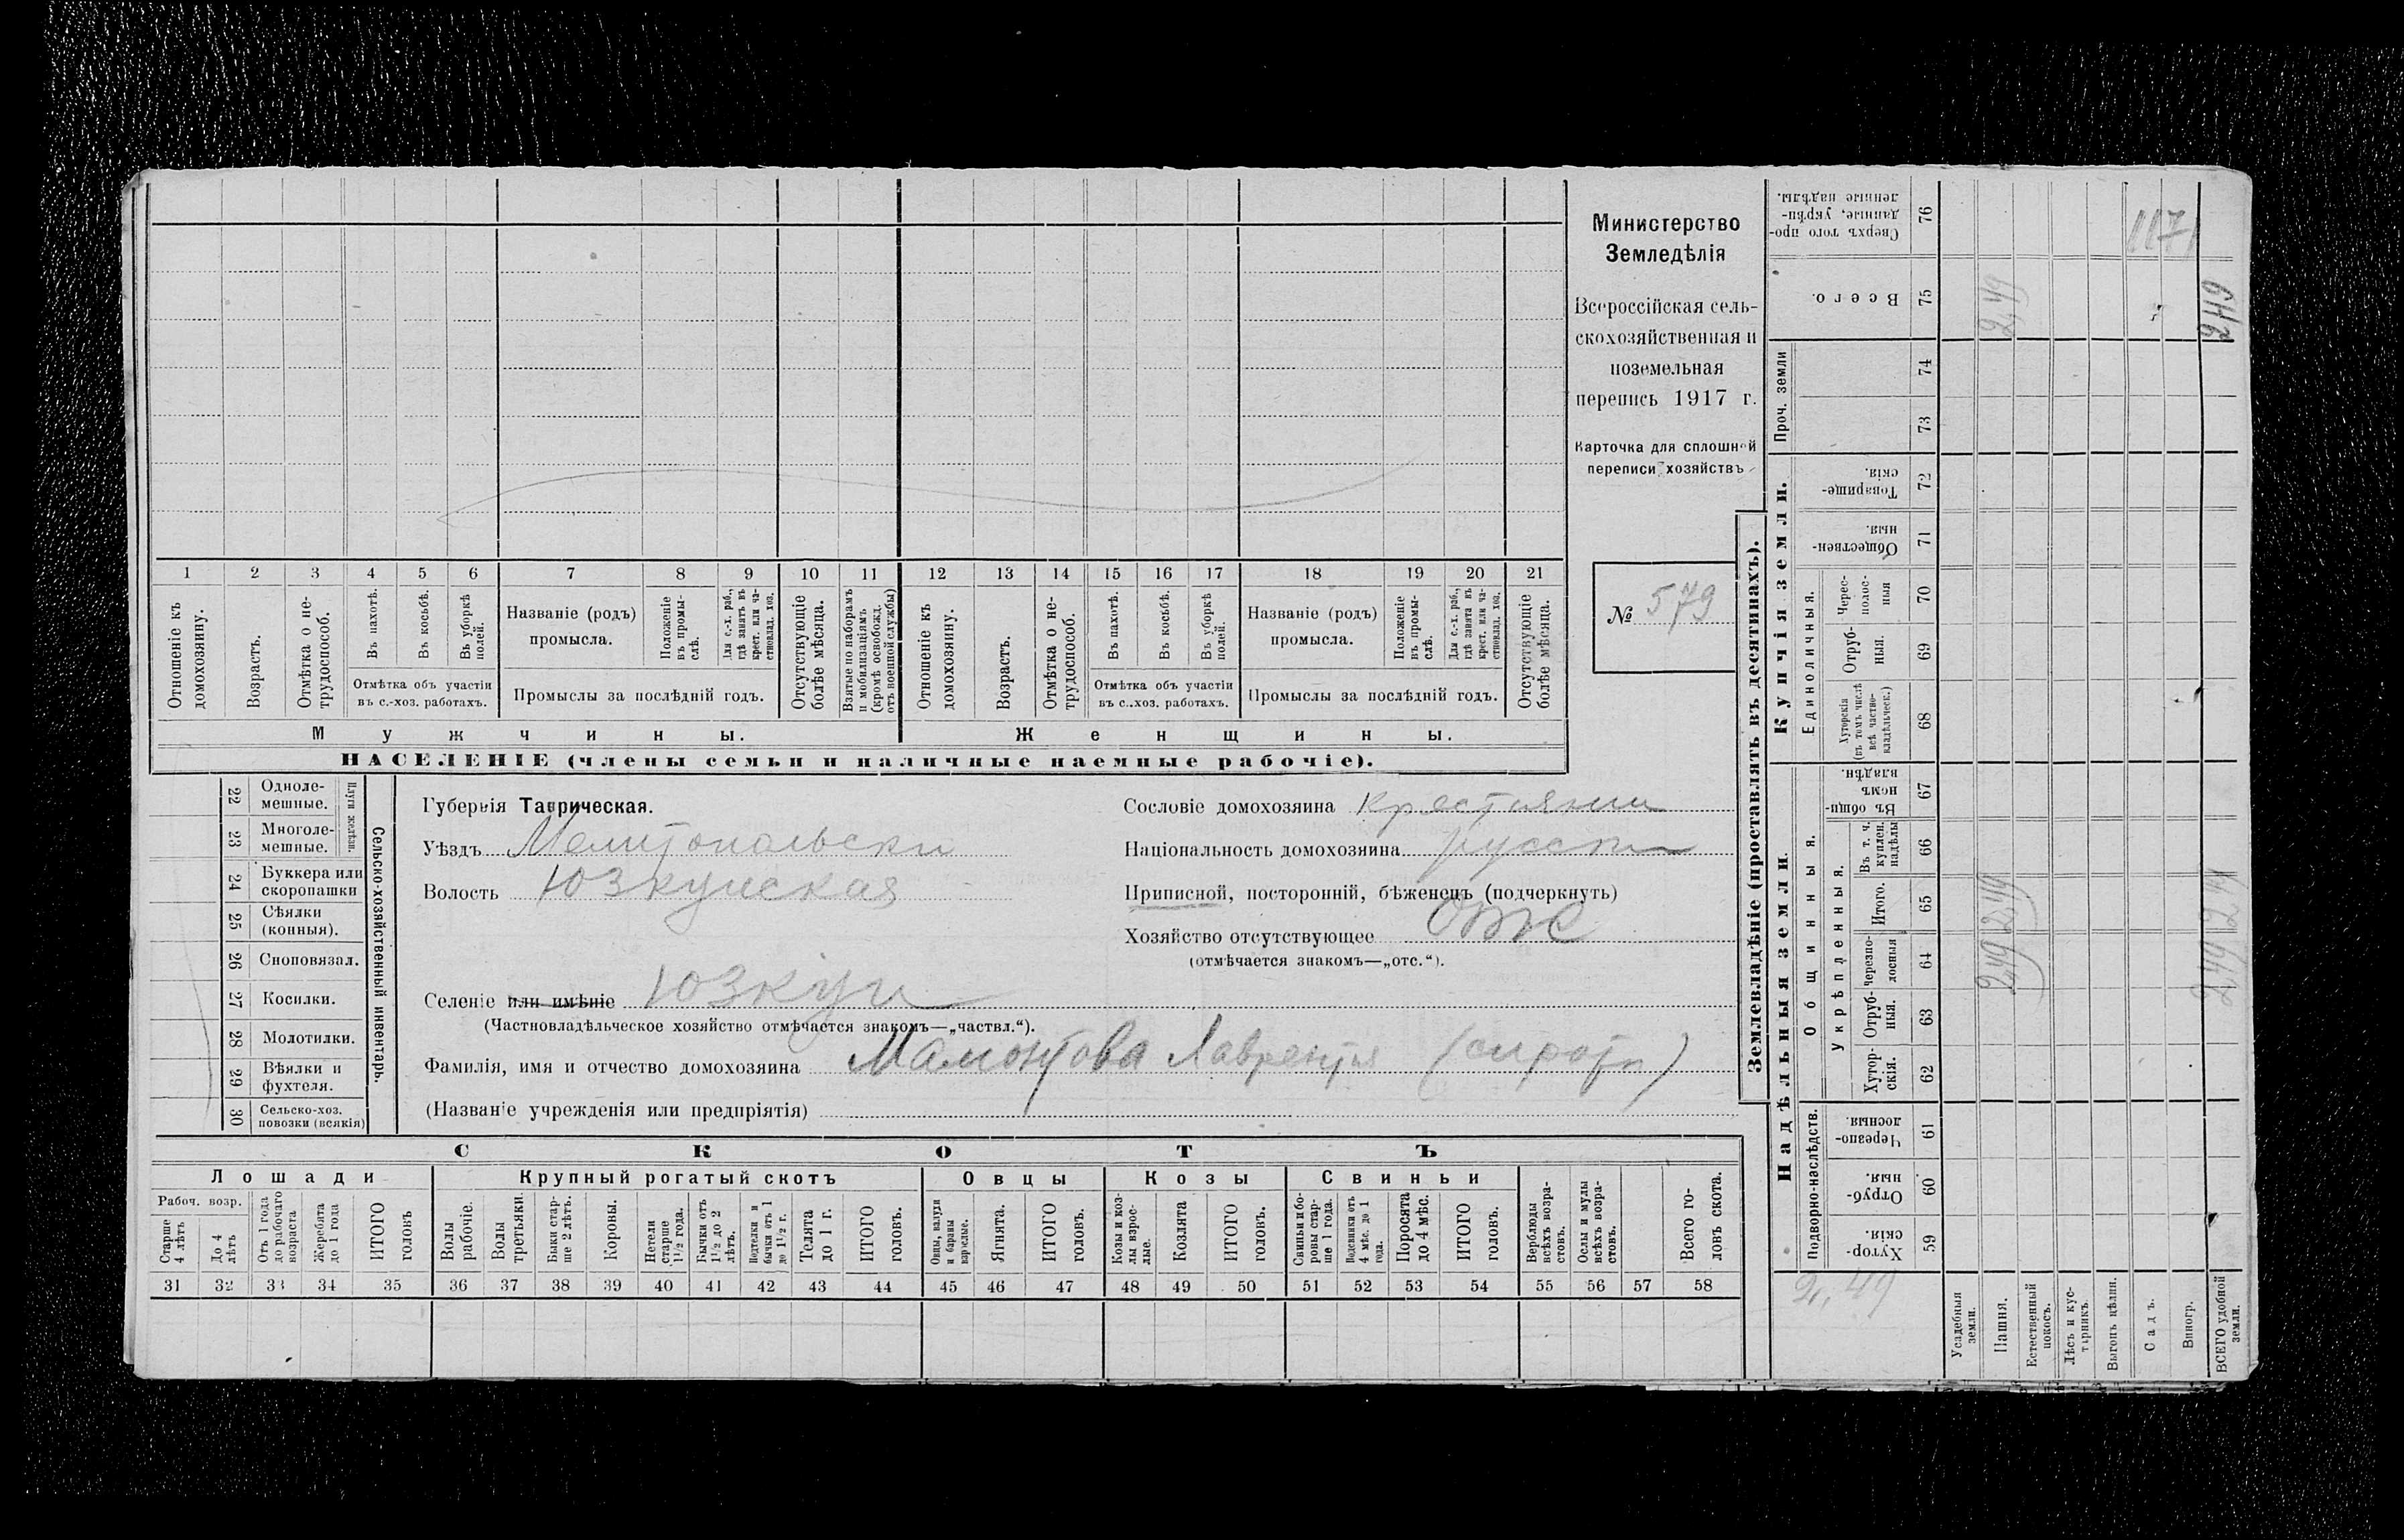 Министерство
Земледѣлія
Всероссійская сель-
скохозяйственная и
поземельная
перепись 1917 г.
Карточка для сплошной
переписи хозяйствъ
№ 579
1 2 3 4 5 6 7 8 9 10 11 12 13 14 15 16 17 18 19 20 21
Отношеніе къ домохозяину.
Возрастъ.
Отмѣтка о не-трудоспособ.
Въ пахотѣ.
Въ косьбѣ.
Въ уборкѣ полей.
Отмѣтка объ участіи
въ с.-хоз. работахъ.
Названіе (родъ)
промысла.
Положеніе въ промы-слѣ.
Для с.-х. раб., гдѣ занятъ въ крест. или ча-стновлад. хоз.
Промыслы за послѣдній годъ.
Отсутствующіе болѣе мѣсяца.
Взятые по наборамъ и мобилизаціямъ (кромѣ освобожд. отъ военной службы)
Отношеніе къ домохозяину.
Возрастъ.
Отмѣтка о не-трудоспособ.
Въ пахотѣ.
Въ косьбѣ.
Въ уборкѣ полей.
Отмѣтка объ участіи
въ с..хоз. работахъ.
Названіе (родъ)
промысла.
Положеніе въ промы-слѣ.
Для с.-х. раб., гдѣ занята въ крест. или ча-стновлад. хоз.
Промыслы за послѣдній годъ.
Отсутствующіе болѣе мѣсяца.
Мужчины. Женщины.
НАСЕЛЕНІЕ (члены семьи и наличные наемные рабочіе).
22 Одноле-мешные.
23 Многоле-мешные.
Плуги желѣзн.
24 Буккера или скоропашки
25 Сѣялки (конныя).
26 Сноповязал.
27 Косилки.
28 Молотилки.
29 Вѣялки и фухтеля.
30 Сельско-хоз. повозки (всякія)
Сельско-хозяйственный инвентарь.
Губернія Таврическая.
Уѣздъ Мелитопольски
Волость Юзкуйская
Селеніе или имѣніе Юзкуи
(Частновладѣльческое хозяйство отмѣчается знакомъ—„частвл.“).
Фамилія, имя и отчество домохозяина Мамонтова Лаврентія (сироты)
(Названіе учрежденія или предпріятія)
Сословіе домохозяина Крестьянин
Національность домохозяина русски
Приписной, посторонній, бѣженецъ (подчеркнуть)
Хозяйство отсутствующее отс
(отмѣчается знакомъ—„отс.“).
СКОТЪ
Лошади Крупный рогатый скотъ Овцы Козы Свиньи
Рабоч. возр.
Старше 4 лѣтъ
До 4 лѣтъ
Отъ 1 года до рабочаго возраста
Жеребята до 1 года
ИТОГО головъ
Волы рабочіе.
Волы третьяки.
Быки стар-ше 2 лѣтъ.
Коровы.
Нетели старше 1½ года.
Бычки отъ 1½ до 2 лѣтъ.
бычки отъ 1 до 1½ г.
Телята до 1 г.
ИТОГО головъ.
Овцы, валухи и бараны взрослые.
Ягнята.
ИТОГО головъ.
Козы и коз-лы взрос-лые.
Козлята
ИТОГО головъ.
Свиньи и бо-ровы стар-ше 1 года.
Подсвинки отъ 4 мѣс. до 1 года.
Поросята до 4 мѣс.
ИТОГО головъ.
Верблюды всѣхъ возра-стовъ.
Ослы и мулы всѣхъ возра-стовъ.
Всего го-ловъ скота.
31 32 33 34 35 36 37 38 39 40 41 42 43 44 45 46 47 48 49 50 51 52 53 54 55 56 57 58
Землевладѣніе (проставлять въ десятинахъ).
Надѣльныя земли. Купчія земли. Проч. земли
Подворно-наслѣдств.
Общинныя.
Укрѣпленныя.
Единоличныя.
Сверхъ того про-данные, укрѣп-ленные надѣлы. 76
Всего. 75
74
73
Товарище-скія. 72
Обществен-ныя. 71
Черес-полос-ныя 70
Отруб-ныя. 69
Хуторскія (въ томъ числѣ всѣ частно-владѣльческ.) 68
Въ общи-номъ владѣн. 67
Въ т. ч. куплен. надѣлы 66
Итого. 65
Черезпо-лосныя 64
Отруб-ныя. 63
Хутор-скія. 62
Черезпо-лосныя. 61
Отруб-ныя. 60
Хутор-скія. 59
Усадебныя земли.
Пашня.
Естественный покосъ.
Лѣсъ и кус-тарникъ.
Выгонъ цѣлин.
Садъ.
Виногр.
ВСЕГО удобной земли.
2,49
2,49 2,49
2,49
2,49 2,49
117